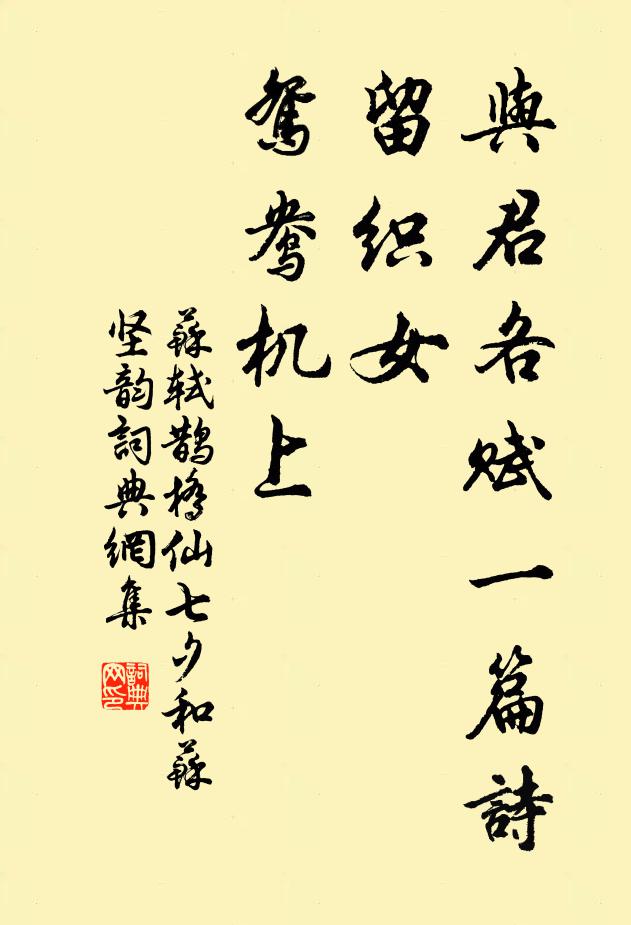 與君各赋一篇詩
留织女
鸳鸯机上
蘇轼鹊橋仙七夕和蘇
坚韵詞典網集
詞典
网印